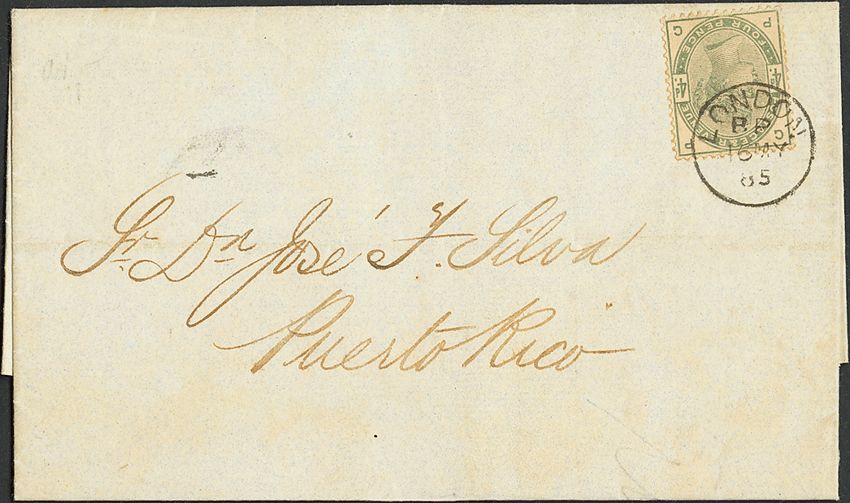 FOUR PENCE
P G
4D 4D
G P
LONDON
16 MY
85
Sr. Dn José F. Silva
Puerto Rico